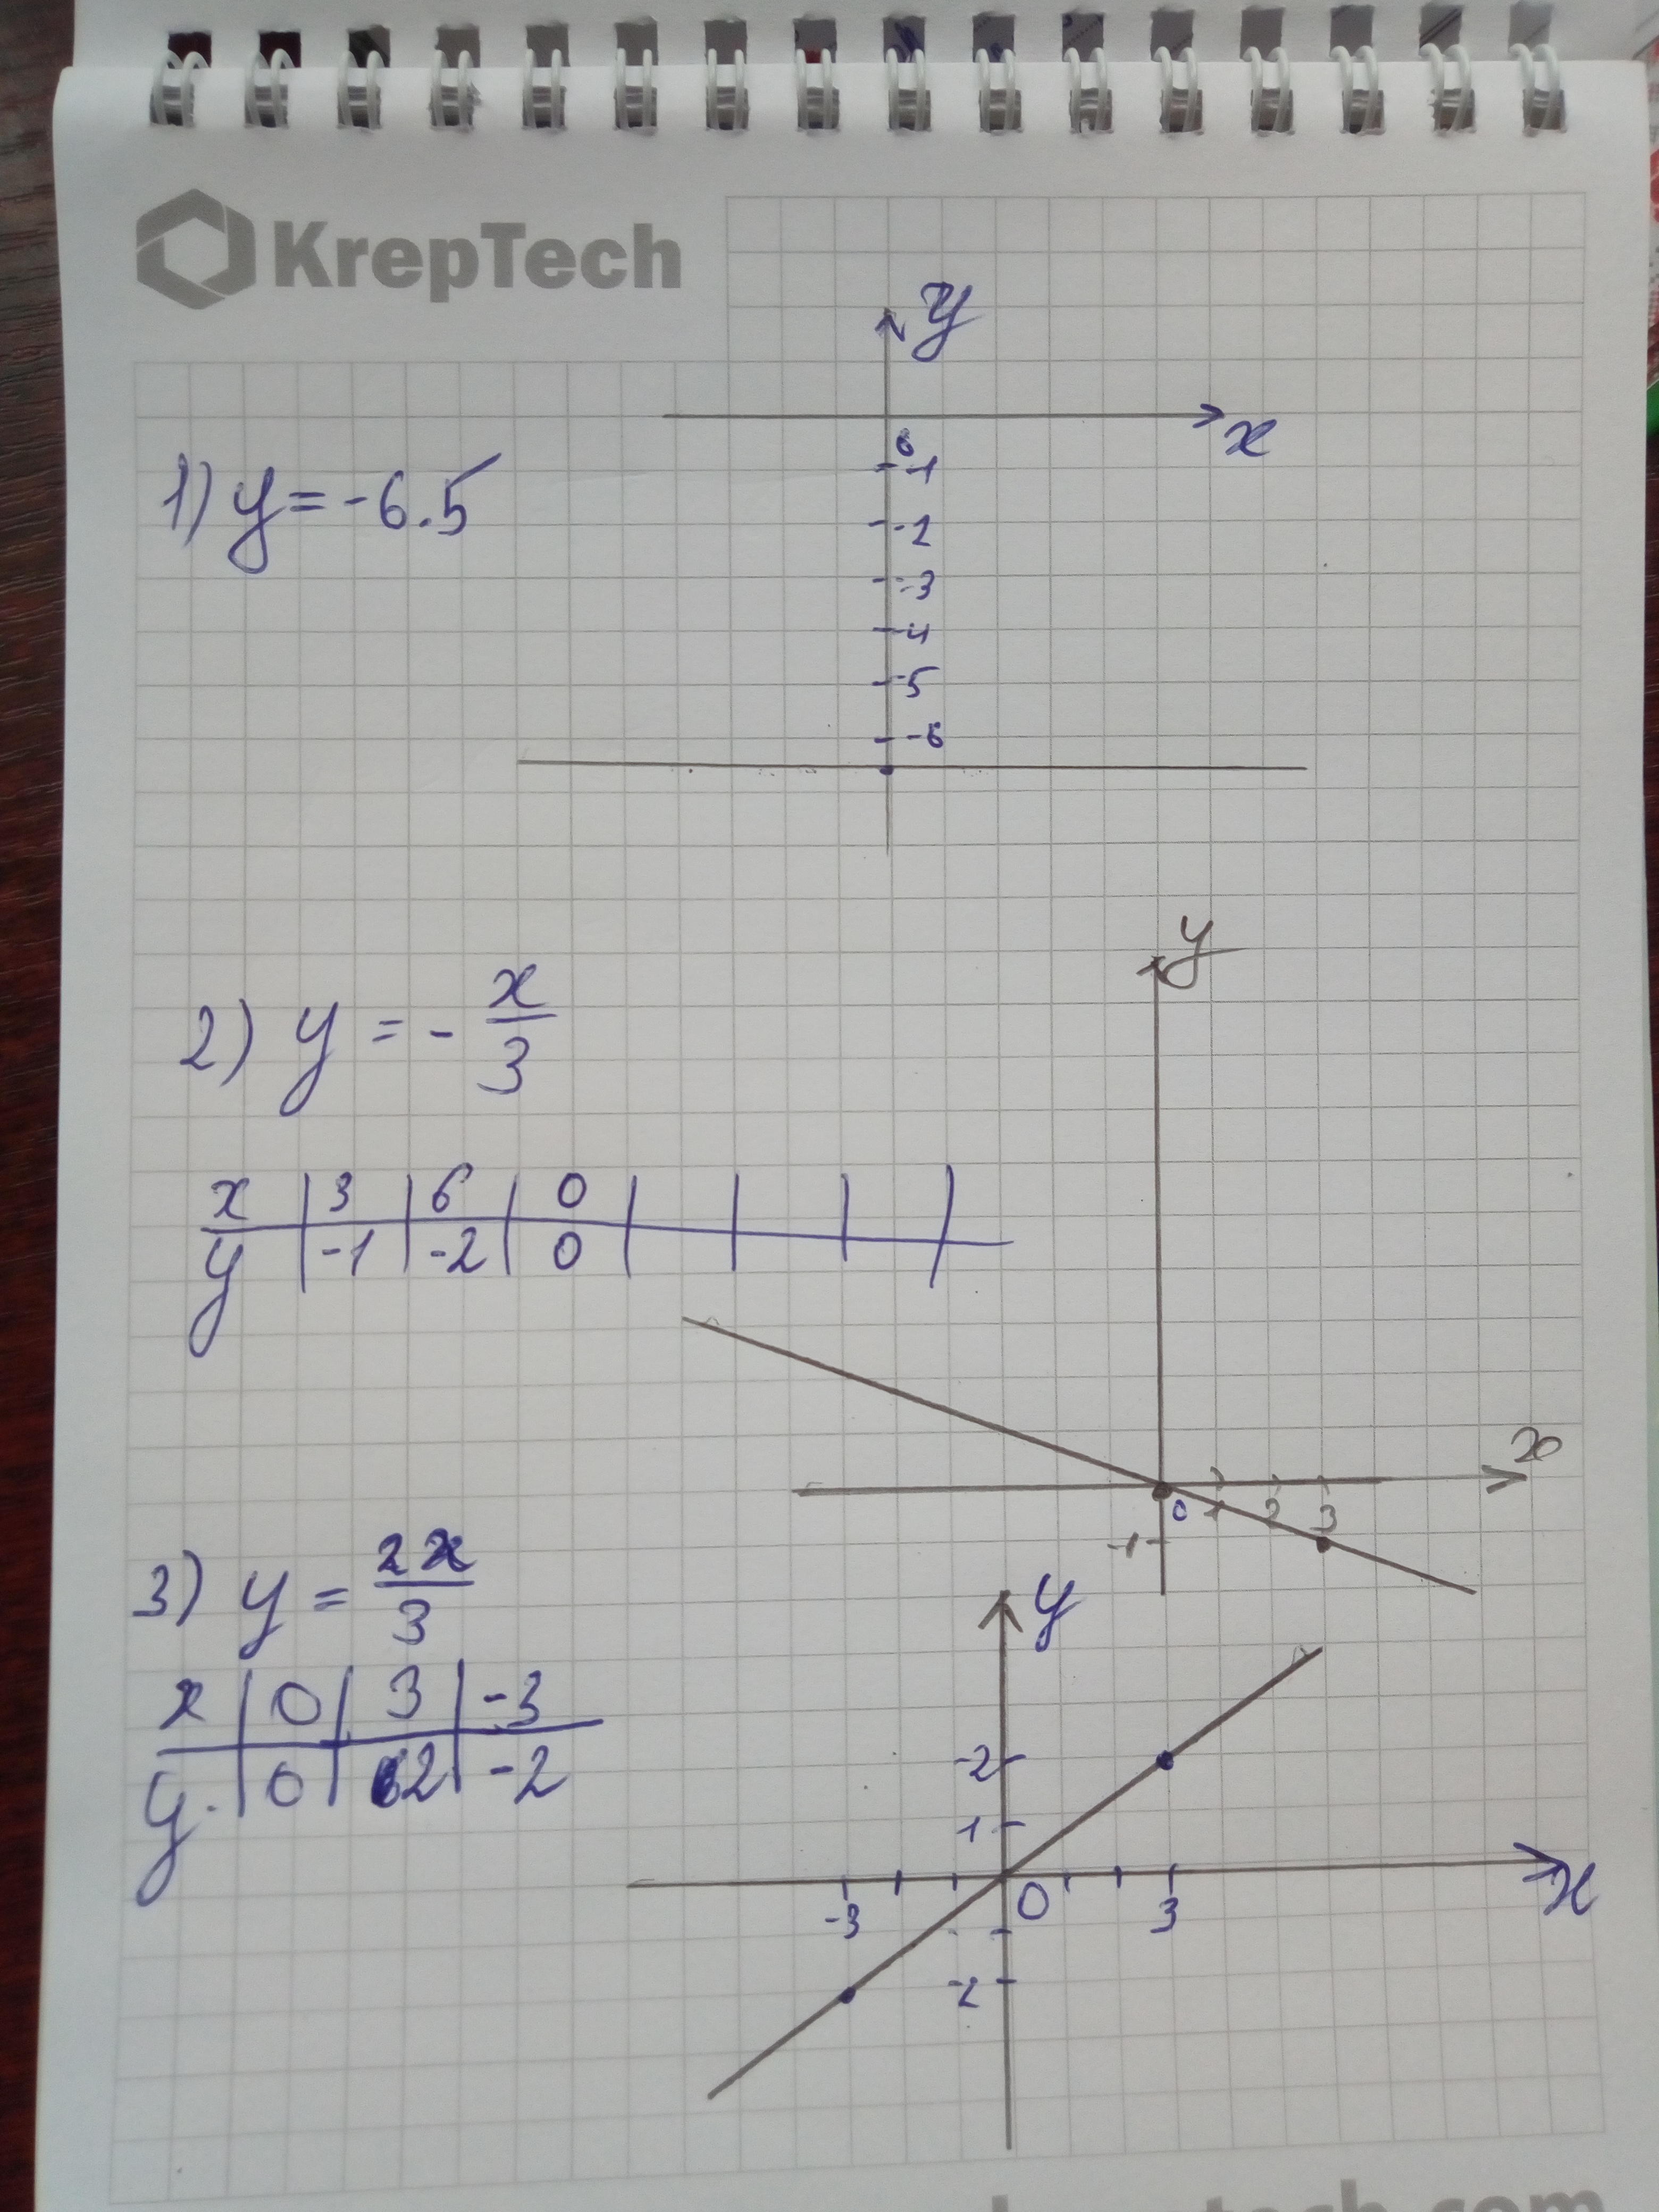 KrepTech
y
x
0
1) y = -6.5
-1
-2
-3
-4
-5
-6
y
2) y = - x/3
x | 3 | 6 | 0 | | | |
y | -1 | -2 | 0 | | | |
x
0 1 2 3
-1
3) y = 2x/3
y
x | 0 | 3 | -3
y | 0 | 2 | -2
-2
1
x
-3 0 3
-2